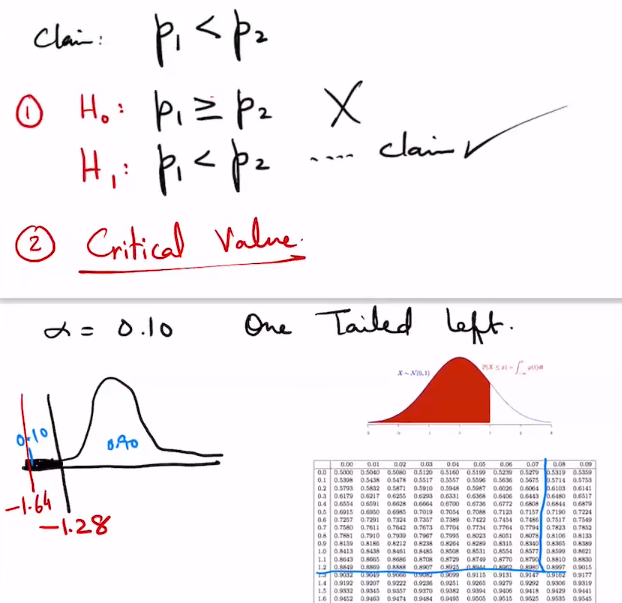 Claim: p₁ < p₂
① H₀: p₁ ≥ p₂ X
H₁: p₁ < p₂ .... claim ✓
② Critical Value.
α = 0.10 One Tailed left.
X ~ N(0,1)
0.10
0.90
-1.64
-1.28
0.00 0.01 0.02 0.03 0.04 0.05 0.06 0.07 0.08 0.09
0.0 0.5000 0.5040 0.5080 0.5120 0.5160 0.5199 0.5239 0.5279 0.5319 0.5359
0.1 0.5398 0.5438 0.5478 0.5517 0.5557 0.5596 0.5636 0.5675 0.5714 0.5753
0.2 0.5793 0.5832 0.5871 0.5910 0.5948 0.5987 0.6026 0.6064 0.6103 0.6141
0.3 0.6179 0.6217 0.6255 0.6293 0.6331 0.6368 0.6406 0.6443 0.6480 0.6517
0.4 0.6554 0.6591 0.6628 0.6664 0.6700 0.6736 0.6772 0.6808 0.6844 0.6879
0.5 0.6915 0.6950 0.6985 0.7019 0.7054 0.7088 0.7123 0.7157 0.7190 0.7224
0.6 0.7257 0.7291 0.7324 0.7357 0.7389 0.7422 0.7454 0.7486 0.7517 0.7549
0.7 0.7580 0.7611 0.7642 0.7673 0.7704 0.7734 0.7764 0.7794 0.7823 0.7852
0.8 0.7881 0.7910 0.7939 0.7967 0.7995 0.8023 0.8051 0.8078 0.8106 0.8133
0.9 0.8159 0.8186 0.8212 0.8238 0.8264 0.8289 0.8315 0.8340 0.8365 0.8389
1.0 0.8413 0.8438 0.8461 0.8485 0.8508 0.8531 0.8554 0.8577 0.8599 0.8621
1.1 0.8643 0.8665 0.8686 0.8708 0.8729 0.8749 0.8770 0.8790 0.8810 0.8830
1.2 0.8849 0.8869 0.8888 0.8907 0.8925 0.8944 0.8962 0.8980 0.8997 0.9015
1.3 0.9032 0.9049 0.9066 0.9082 0.9099 0.9115 0.9131 0.9147 0.9162 0.9177
1.4 0.9192 0.9207 0.9222 0.9236 0.9251 0.9265 0.9279 0.9292 0.9306 0.9319
1.5 0.9332 0.9345 0.9357 0.9370 0.9382 0.9394 0.9406 0.9418 0.9429 0.9441
1.6 0.9452 0.9463 0.9474 0.9484 0.9495 0.9505 0.9515 0.9525 0.9535 0.9545